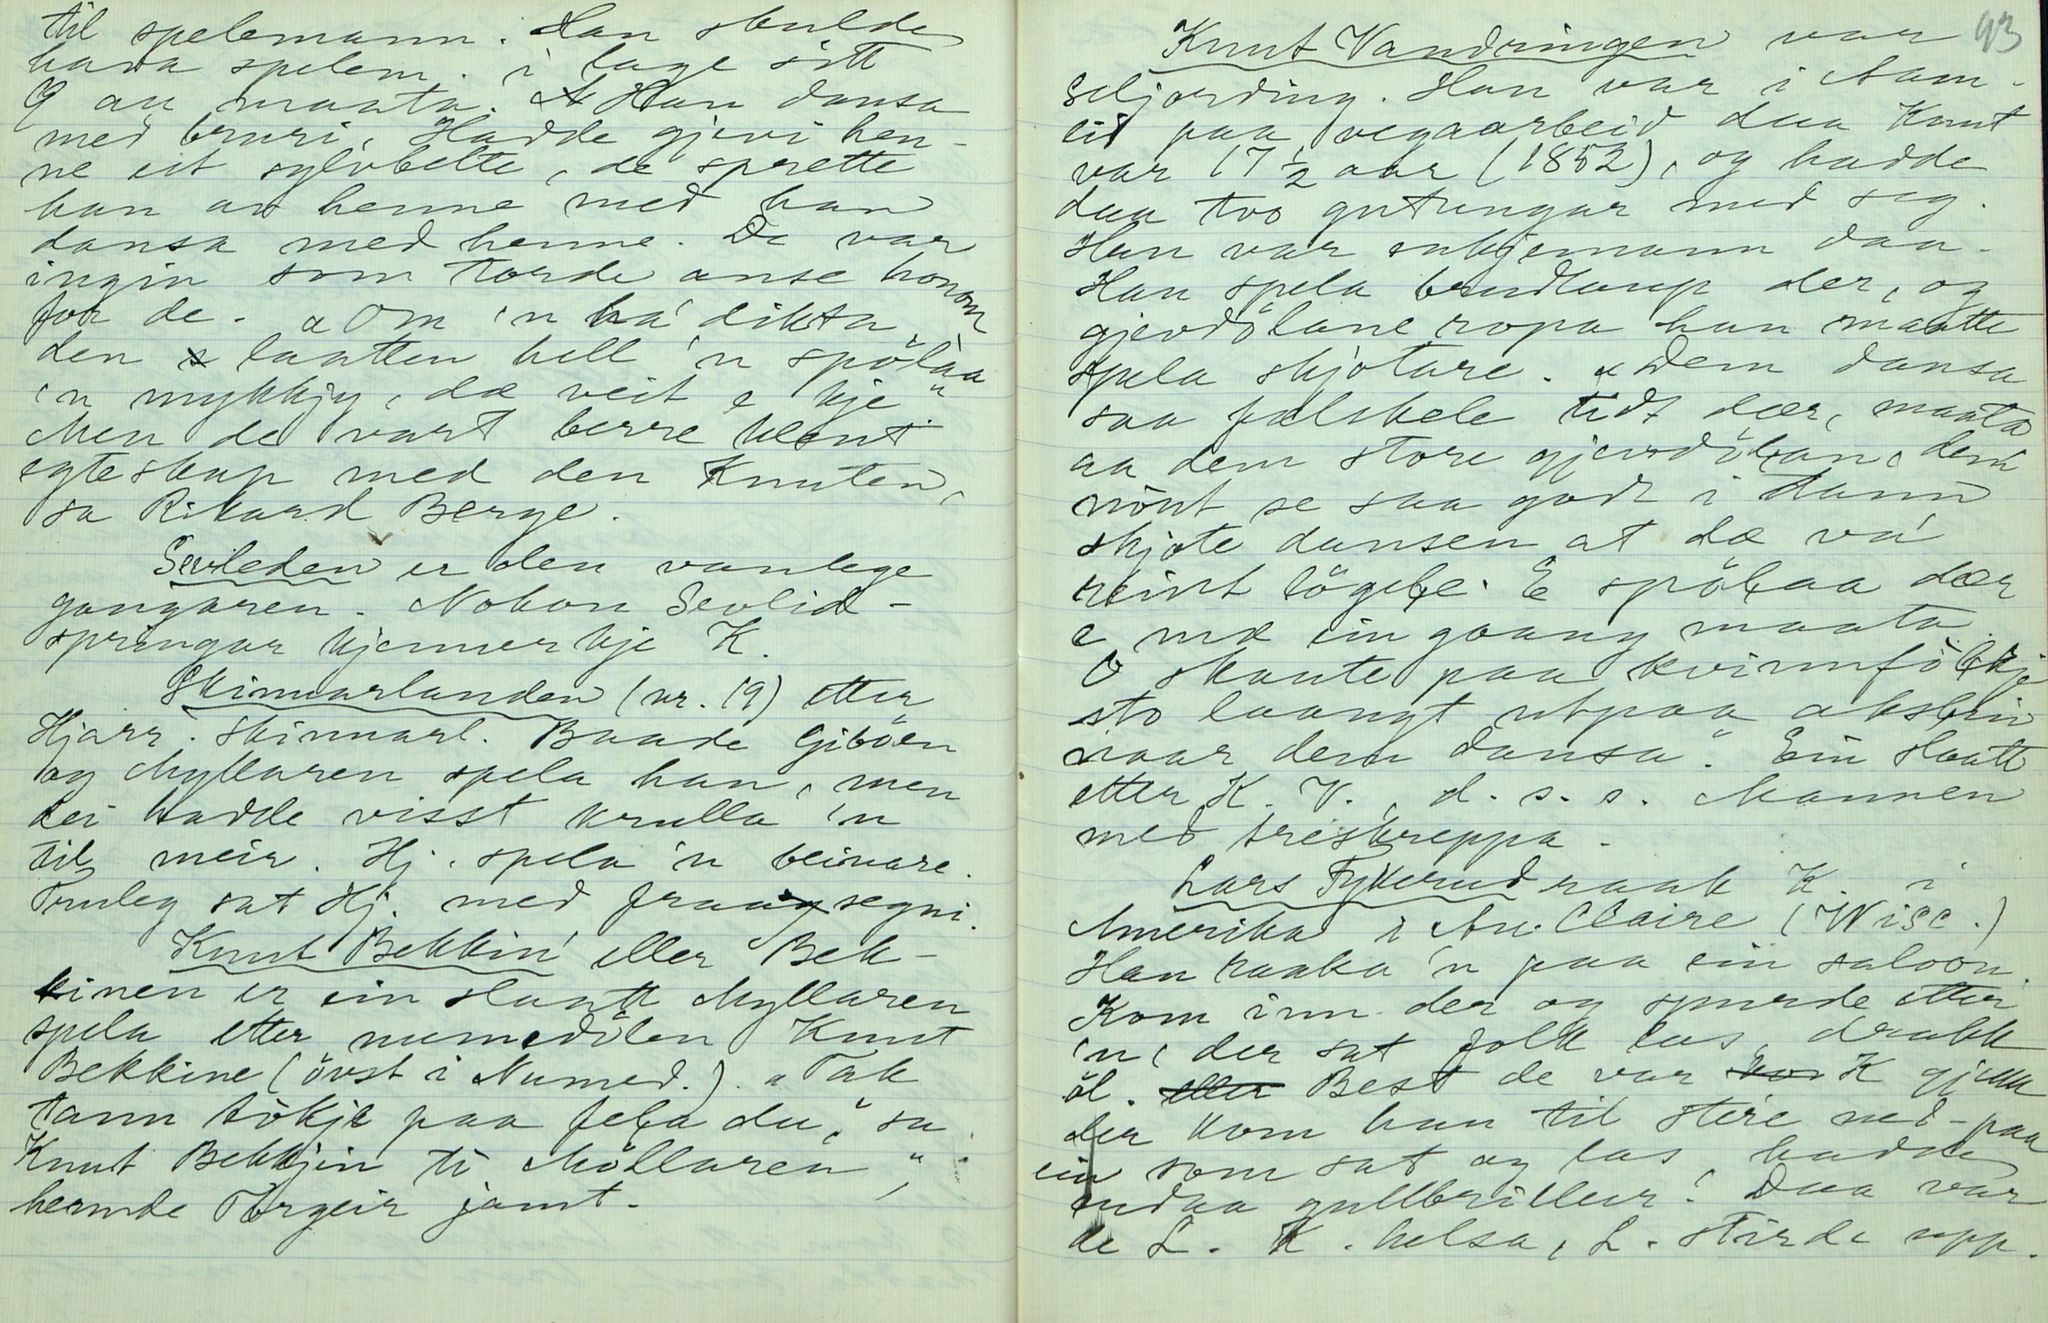 til spelemann. Han skulde
hava spelem. i lage sitt
O au maata. Han dansa
med bruri. Hadde gjevi hen-
ne eit sylvbelte, de sprette
han av henne med han
dansa med henne. De var
ingin som torde anse honom
for de. „Om 'n ha' dikta
den slaatten hell 'n spölaa
'n mykkjy, dæ veit e kje"
Men de vart berre kleint
egteskap med den Knuten,
sa Rikard Berge.
Sevleden er den vanlege
gangaren. Nokon Sevlid-
springar kjenner kje K.
Skinnarlanden (nr. 19) etter
Hjarr. Skinnarl. Baade Giböen
og Myllaren spela han, men
dei hadde visst krulla 'n
til meir. Hj. spela 'n beinare.
Truleg sat Hj. med fraasegni.
Knut Bekkin' eller Bek-
kinen er ein slaatt Myllaren
spela etter numedölen Knut
Bekkine (övst i Numed.). „Tak
tann tökje paa fela du," sa
Knut Bekkjin ti Möllaren",
hermde Torgeir jamt.
93
Knut Vandringen var
Seljording. Han var i Aam-
li paa vegaarbeid daa Knut
var 17 1/2 aar (1852), og hadde
daa tvo gutungar med seg.
Han var enkjemann daa.
Han spela brudlaup der, og
gjevdölane ropa han maatte
spela skjotare. „Dem dansa
saa fælskele tidt dær, maata
aa dem store gjevdölan, dem
nönt se saa godt i dann
skjote dansen at dæ va'
reint lögele. E spölaa dær
e mæ ein gaang maata.
O skaute paa kvinnfölkje
sto laangt utpaa akslein
naar dem dansa". Ein slaatt
etter K. V., d. s. s. Mannen
med treskreppa.
Lars Fykerud raak K. i
Amerika i Au Claire (Wisc.)
Han raaka 'n paa ein saloon.
Kom inn der og spurde etter
'n, der sat folk las, drakk
öl. Best de var K gjekk
der kom han til stire ned-paa
ein som sat og las, hadde
endaa gullbriller! Daa var
de L. K. helsa, L. stirde upp.